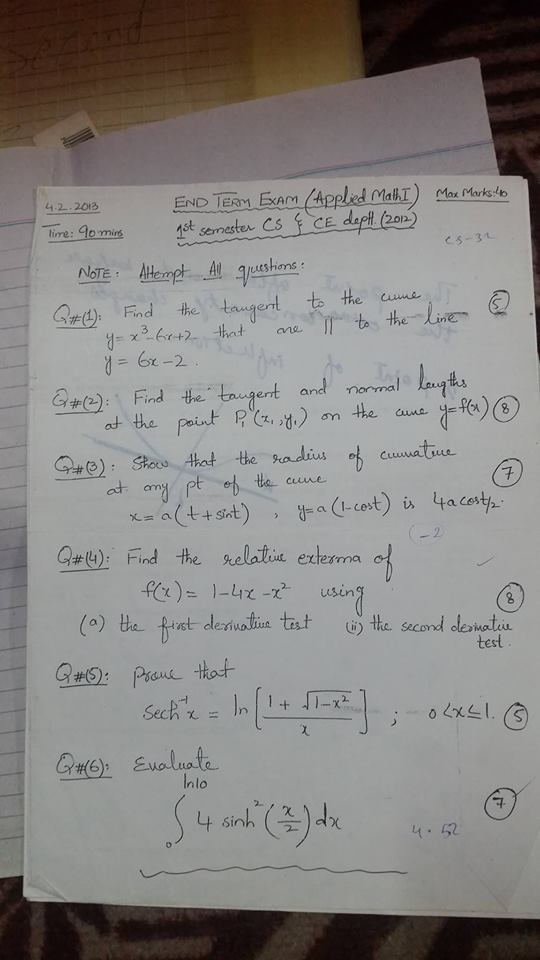 4.2.2013 END TERM EXAM (Applied Math I) Max Marks: 40
Time: 90 mins 1st semester CS & CE deptt. (2012)
CS-32
NOTE: Attempt All questions:
Q#(1): Find the tangent to the curve (5)
y = x³-6x+2 that are || to the line
y = 6x-2.
Q#(2): Find the tangent and normal lengths
at the point P₁(x₁,y₁) on the curve y=f(x) (8)
Q#(3): Show that the radius of curvature
at any pt of the curve (7)
x = a(t+sint), y=a(1-cost) is 4a cost/2.
(-2
Q#(4): Find the relative exterma of
f(x) = 1-4x-x² using (8)
(a) the first derivative test (ii) the second derivative
test.
Q#(5): Prove that
Sech⁻¹x = ln [ (1 + √(1-x²)) / x ] ; 0<x≤1. (5)
Q#(6): Evaluate
∫₀^ln10 4 sinh²(x/2) dx (7)
4.52